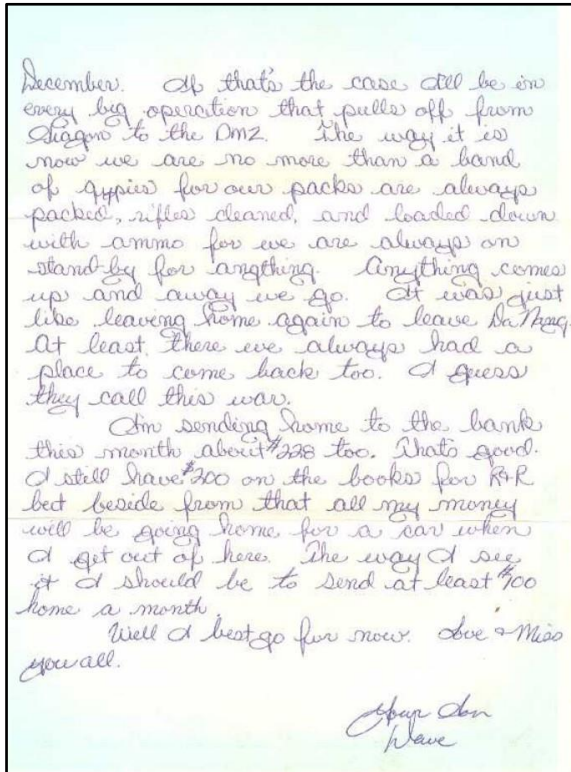 December. If that's the case I'll be in
every big operation that pulls off from
Siagon to the DMZ. The way it is
now we are no more than a band
of gypies for our packs are always
packed, rifles cleaned, and loaded down
with ammo for we are always on
stand-by for anything. Anything comes
up and away we go. It was just
like leaving home again to leave Da Nang.
At least there we always had a
place to come back too. I guess
they call this war.
I'm sending home to the bank
this month about $228 too. Thats good.
I still have $200 on the books for R+R
but beside from that all my money
will be going home for a car when
I get out of here. The way I see
it I should be to send at least $100
home a month.
Well I best go for now. Love & Miss
you all.
Your Son
Dave